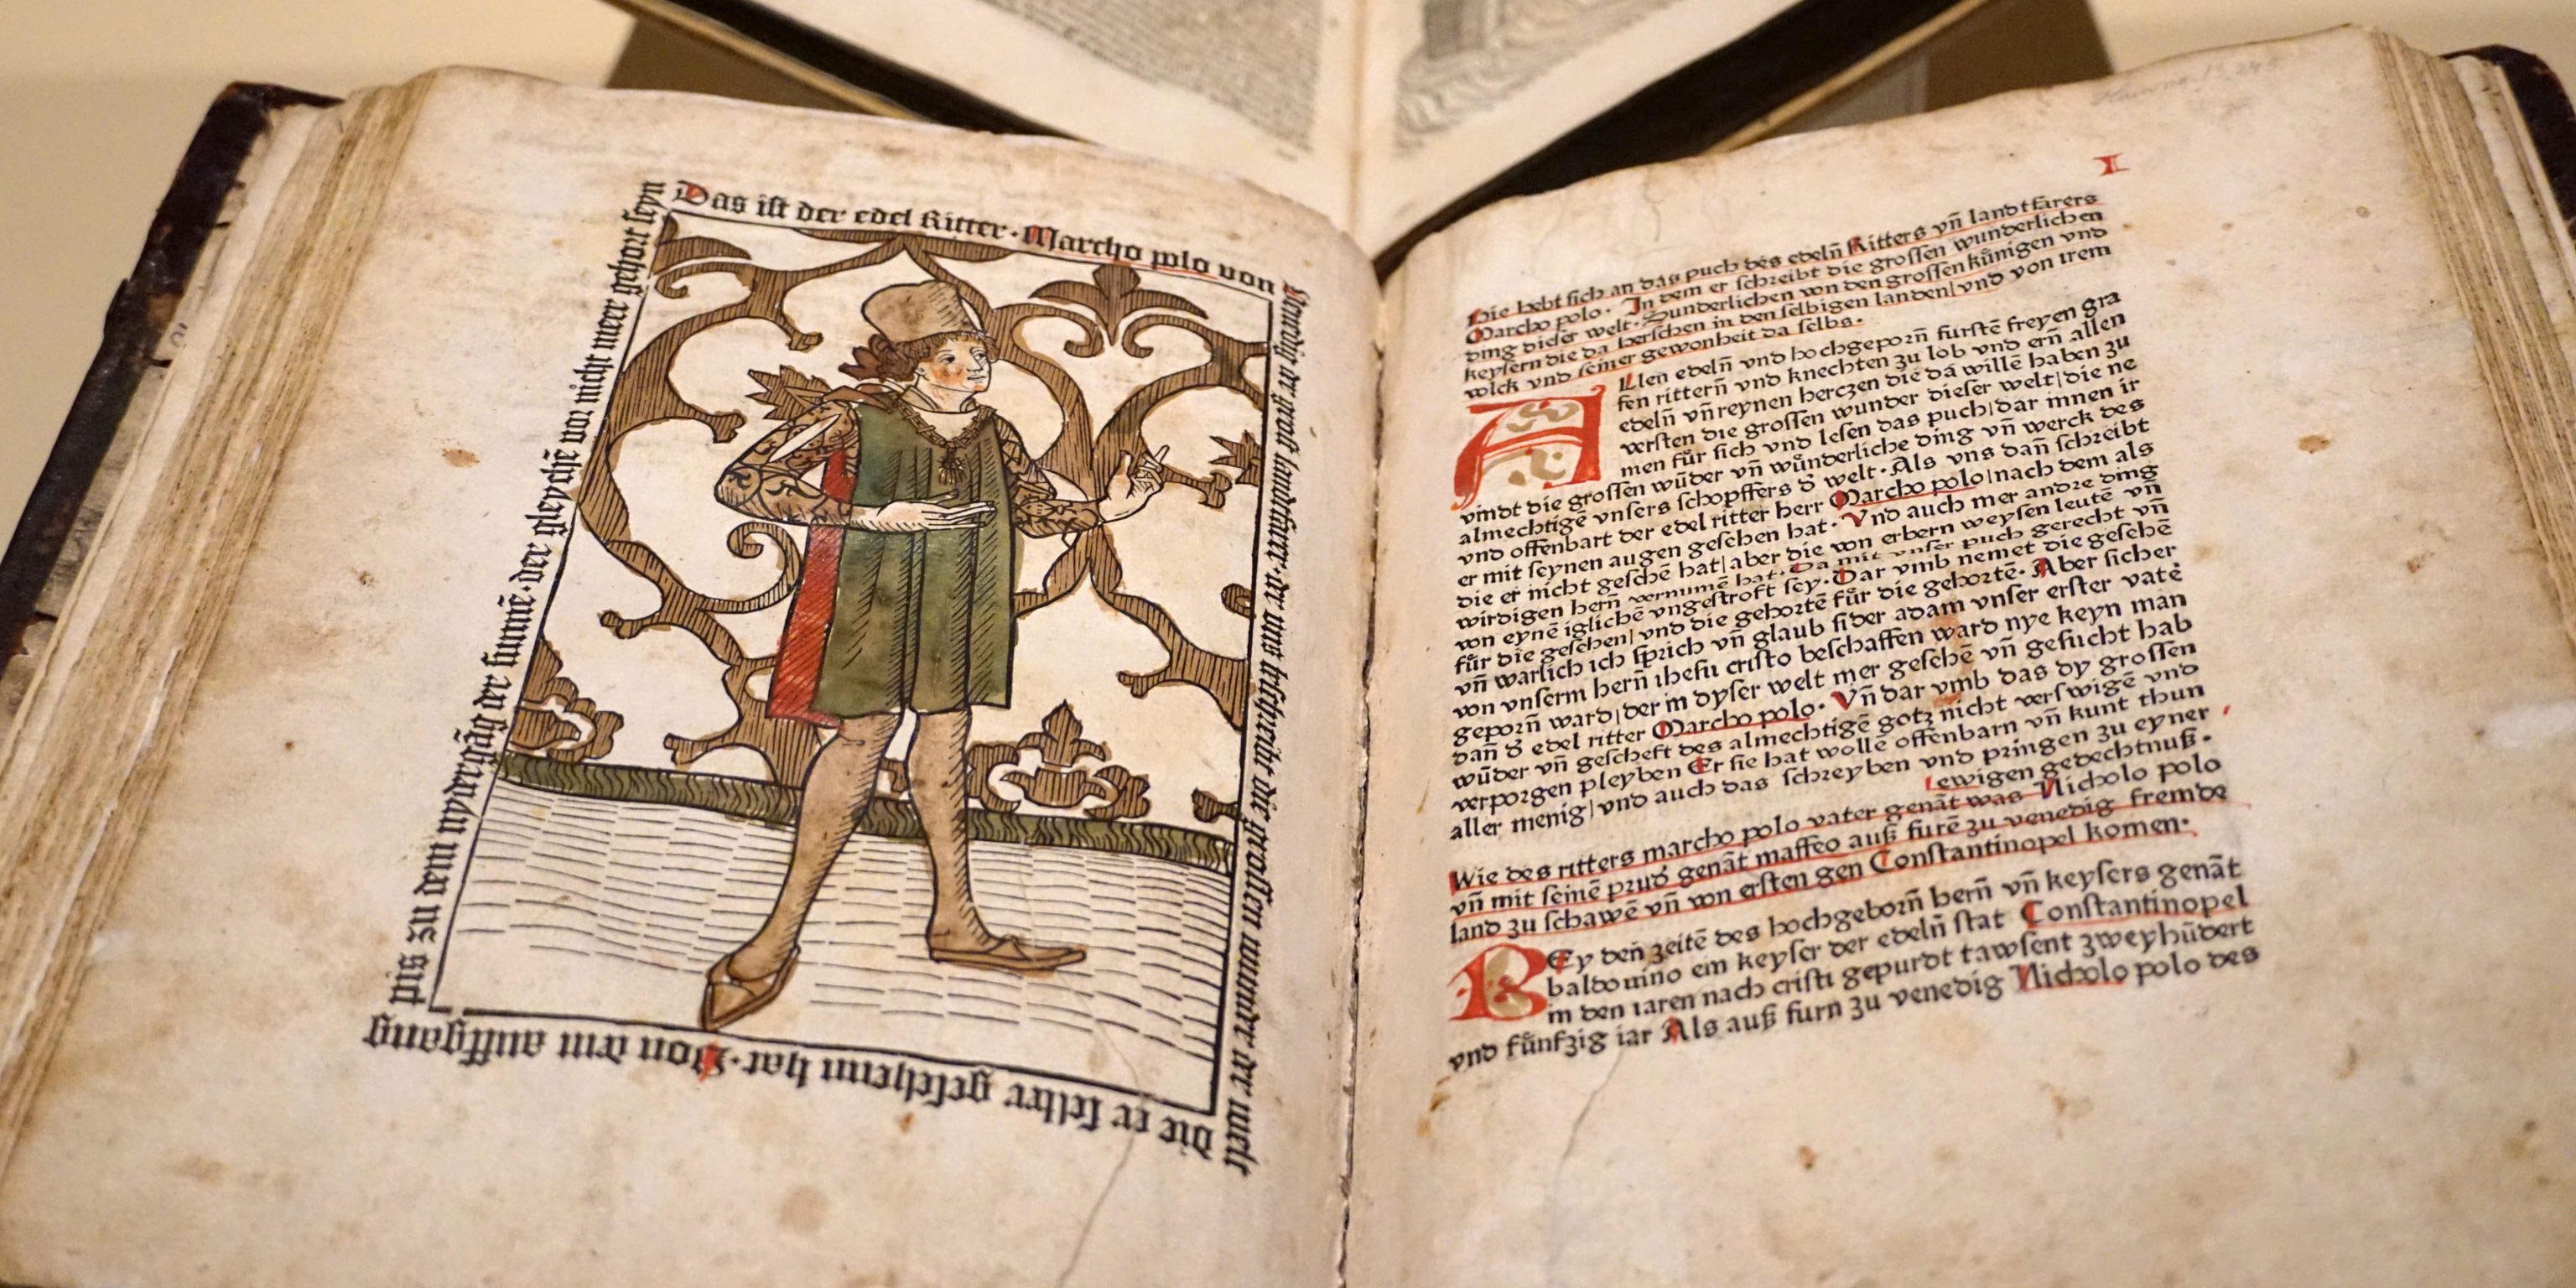 Das ist der edel Ritter · Marcho polo von
Venedig der grost landtfarer · der uns beschreibt die grossen wunder der welt
die er selber gesehenn hat · Von dem auffgang
pis zu dem nydergāg der sunnē · der gleychē vor nicht meer gehort seyn
I
Hie hebt sich an das puch des edelñ Ritters vñ landtfarers
Marcho polo · In dem er schreibt die grossen wunderlichen
ding dieser welt · Sunderlichen von den grossen kůnigen vnd
keysern die da herschen in den selbigen landen|vnd von irem
volck vnd seiner gewonheit da selbs ·
ALlen edelñ vnd hochgeporñ furstē freyen gra
fen ritterñ vnd knechten zu lob vnd erñ allen
edelñ vñ reynen herczen die da willē haben zu
versten die grossen wunder dieser welt|die ne
men fůr sich vnd lesen das puch|dar innen ir
vindt die grossen wūder vñ wůnderliche ding vñ werck des
almechtigē vnsers schopffers d̕ welt · Als vns dañ schreibt
vnd offenbart der edel ritter herr Marcho polo|nach dem als
er mit seynen augen gesehen hat · Vnd auch mer andre ding
die er nicht gesehē hat|aber die von erbern weysen leutē vñ
wirdigen herñ vernumē hat · Da mit vnser puch gerecht vñ
von eynē iglichē vngestroft sey · Dar vmb nemet die gesehē
fůr die gesehen|vnd die gehortē fůr die gehortē · Aber sicher
vñ warlich ich sprich vñ glaub sider adam vnser erster vatē
von vnserm herñ ihesu cristo beschaffen ward nye keyn man
geporñ ward|der in dyser welt mer gesehē vñ gesucht hab
dañ d̕ edel ritter Marcho polo · Vñ dar vmb das dy grossen
wūder vñ gescheft des almechtigē gotz nicht verswigē vnd
verporgen pleyben Er sie hat wollē offenbarn vñ kunt thun
aller menig|vnd auch das schreyben vnd pringen zu eyner
ewigen gedechtnuß ·
Wie des ritters marcho polo vater genāt was Nicholo polo
vñ mit seinē prud̕ genāt maffeo auß furē zu venedig fremde
land zu schawē vñ von ersten gen Constantinopel komen ·
BEy den zeitē des hochgeborñ herñ vñ keysers genāt
baldouino ein keyser der edelñ stat Constantinopel
in den iaren nach cristi gepurdt tawsent zweyhūdert
vnd fůnfzig iar Als auß furn zu venedig Nicholo polo des